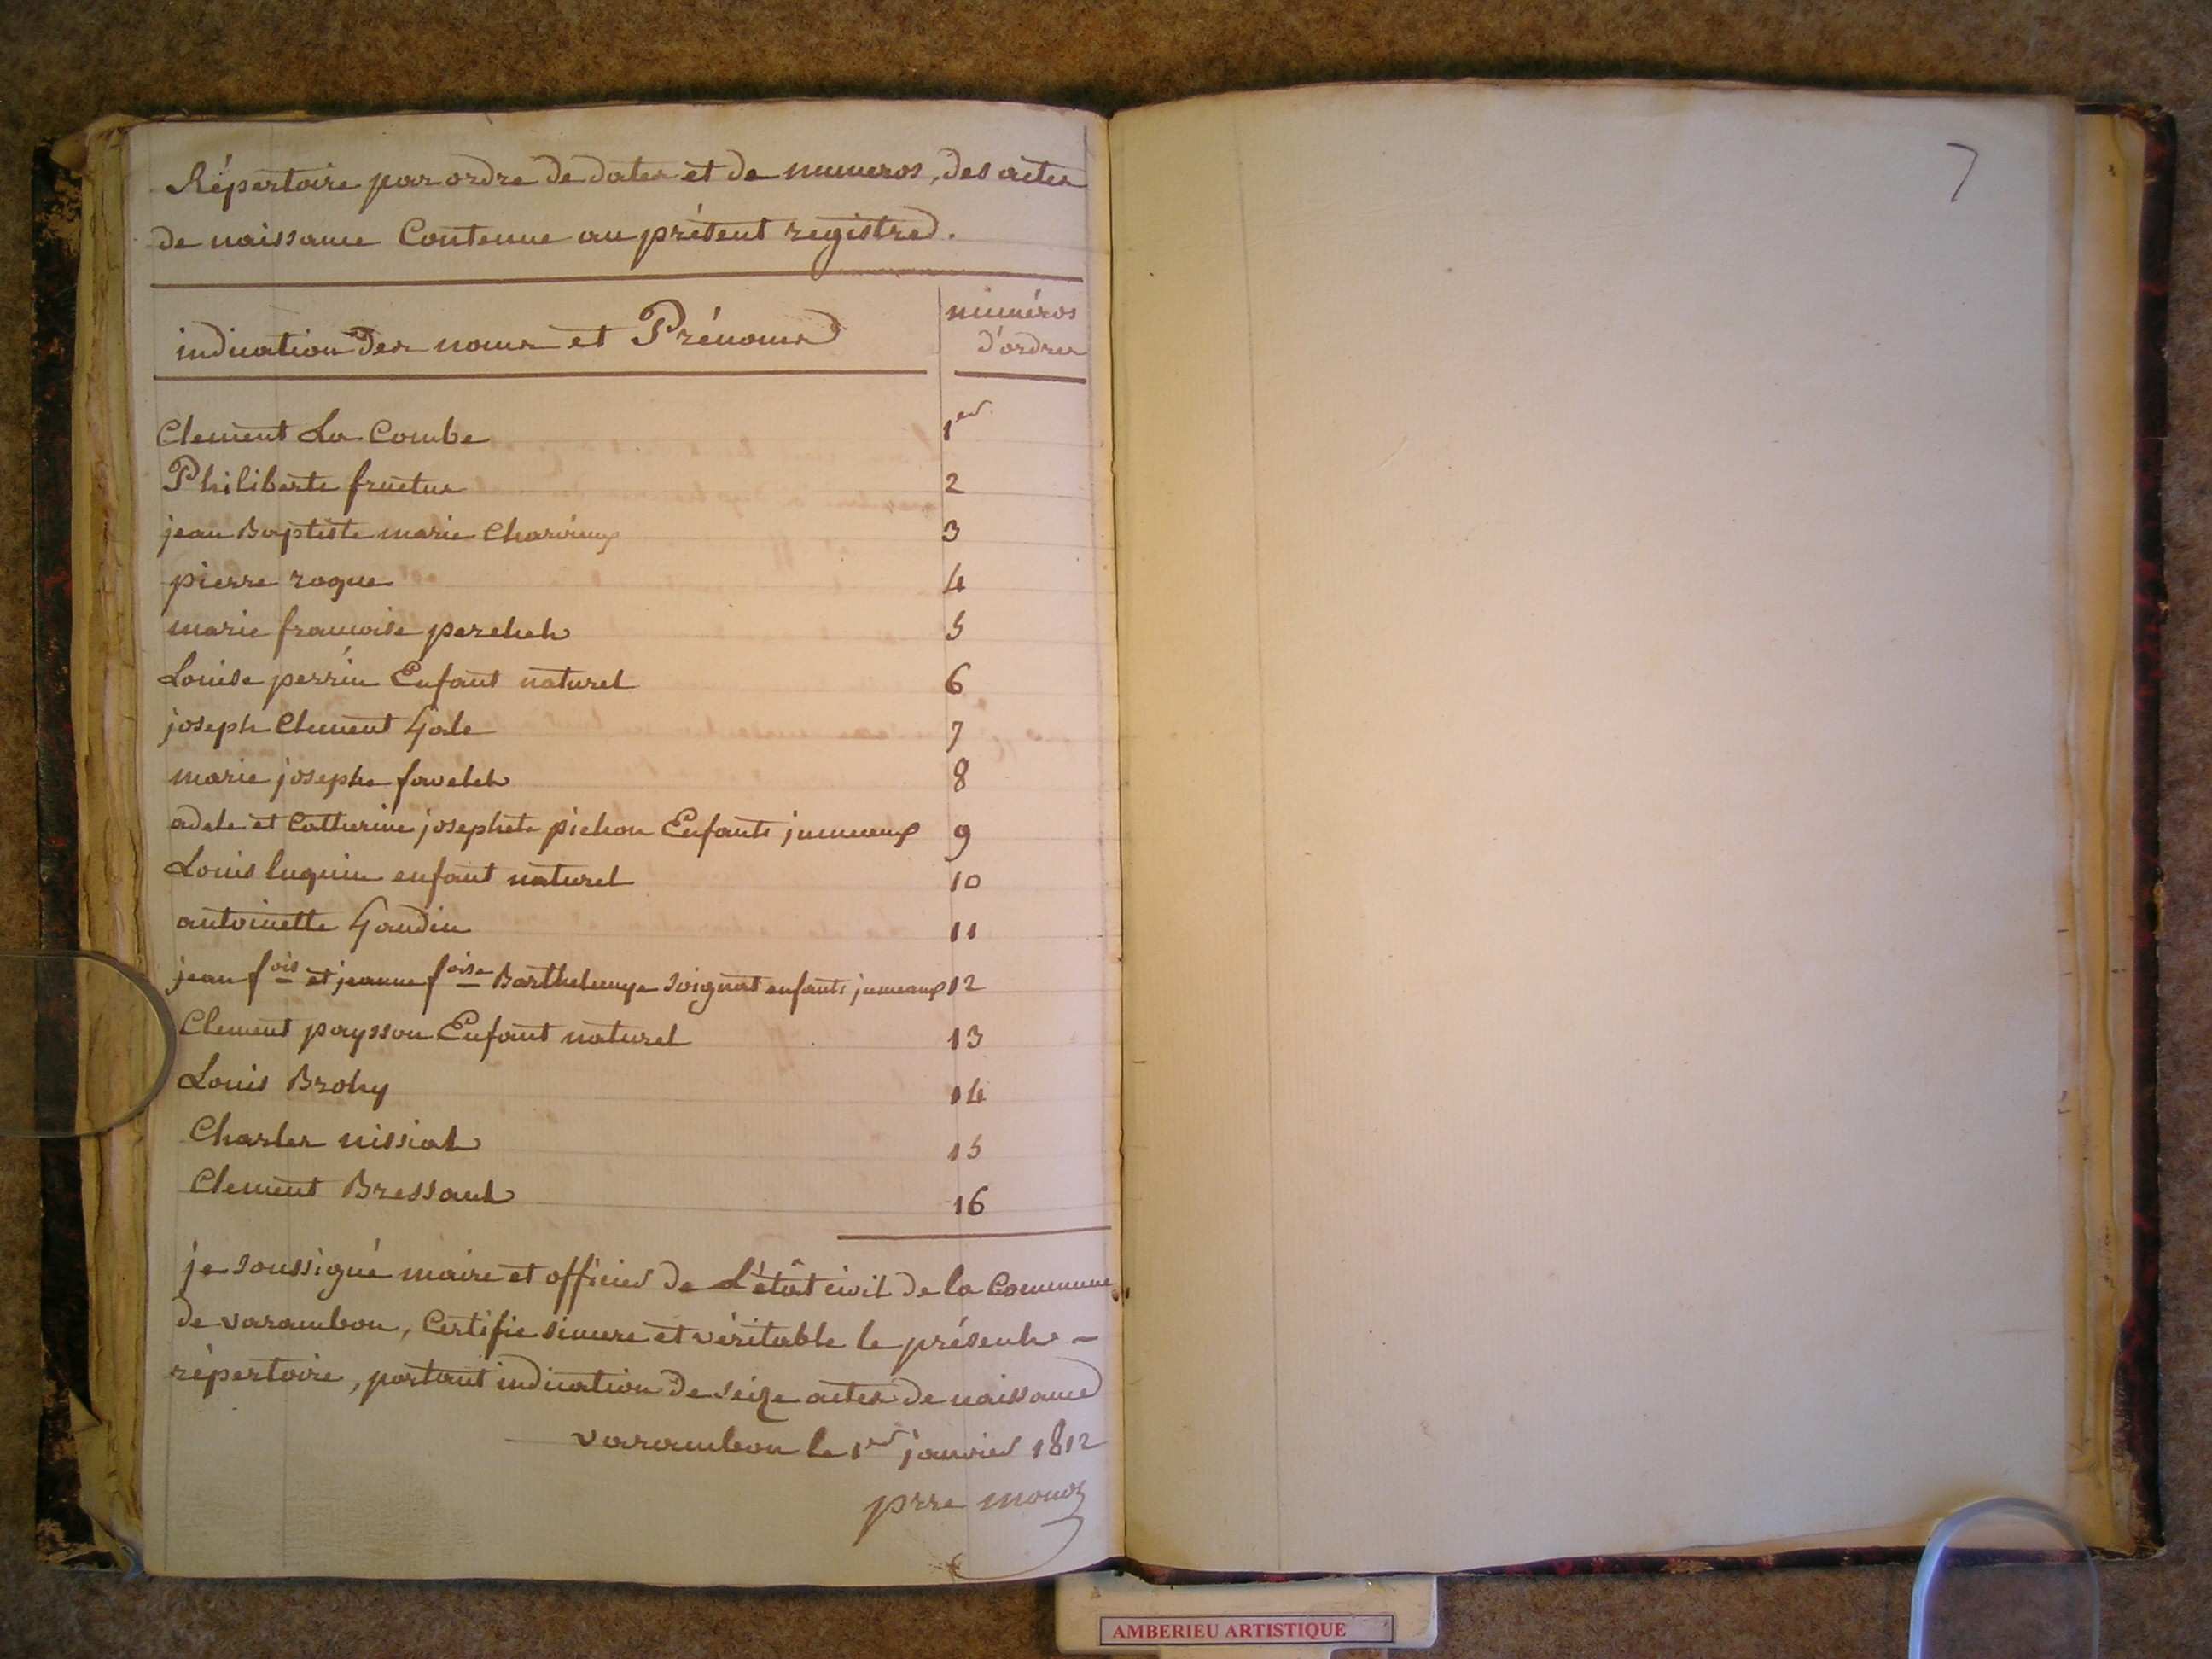 Répertoire par ordre de dates et de numeros, des actes
de naissance Contenue au présent registre.
indication des noms et Prénoms
numéros
d'ordres
Clement La Combe 1er
Philiberte fructus 2
jean Baptiste marie Charvieux 3
pierre roque 4
marie francoise perchet 5
Louise perrin Enfant naturel 6
joseph Clement Gale 7
marie josephe favelet 8
adele et Catherine josephete pichon Enfants jumeaux 9
Louis luquin enfant naturel 10
antoinette Gaudin 11
jean fois et jeanne foise Barthelemye Soignat enfants jumeaux 12
Clement paysson Enfant naturel 13
Louis Brohy 14
Charles nissiat 15
Clement Bressant 16
je soussigné maire et officier de L'état civil de la Commune
de varambon, Certifie sincere et véritable le présent -
répertoire, portant indication de seize actes de naissance
varambon le 1er janvier 1812
prre monoz
7
AMBERIEU ARTISTIQUE